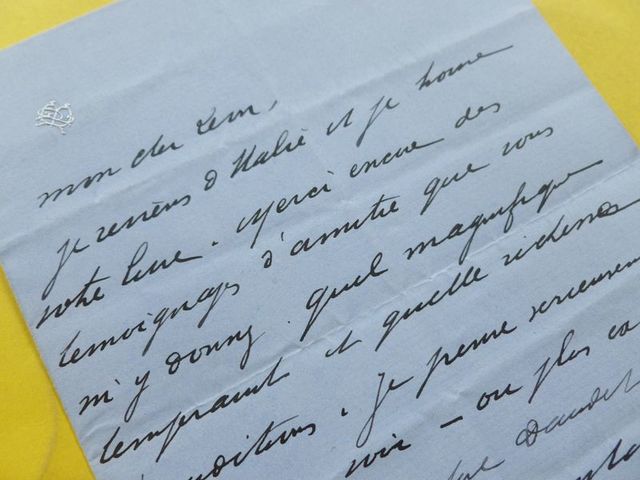 mon cher Léon,
je reviens d'Italie et je trouve
votre livre. Merci encore des
temoignages d'amitié que vous
m'y donnez. Quel magnifique
temperament et quelle richesse
je pense serieusement
voir – ou plus
Daudet